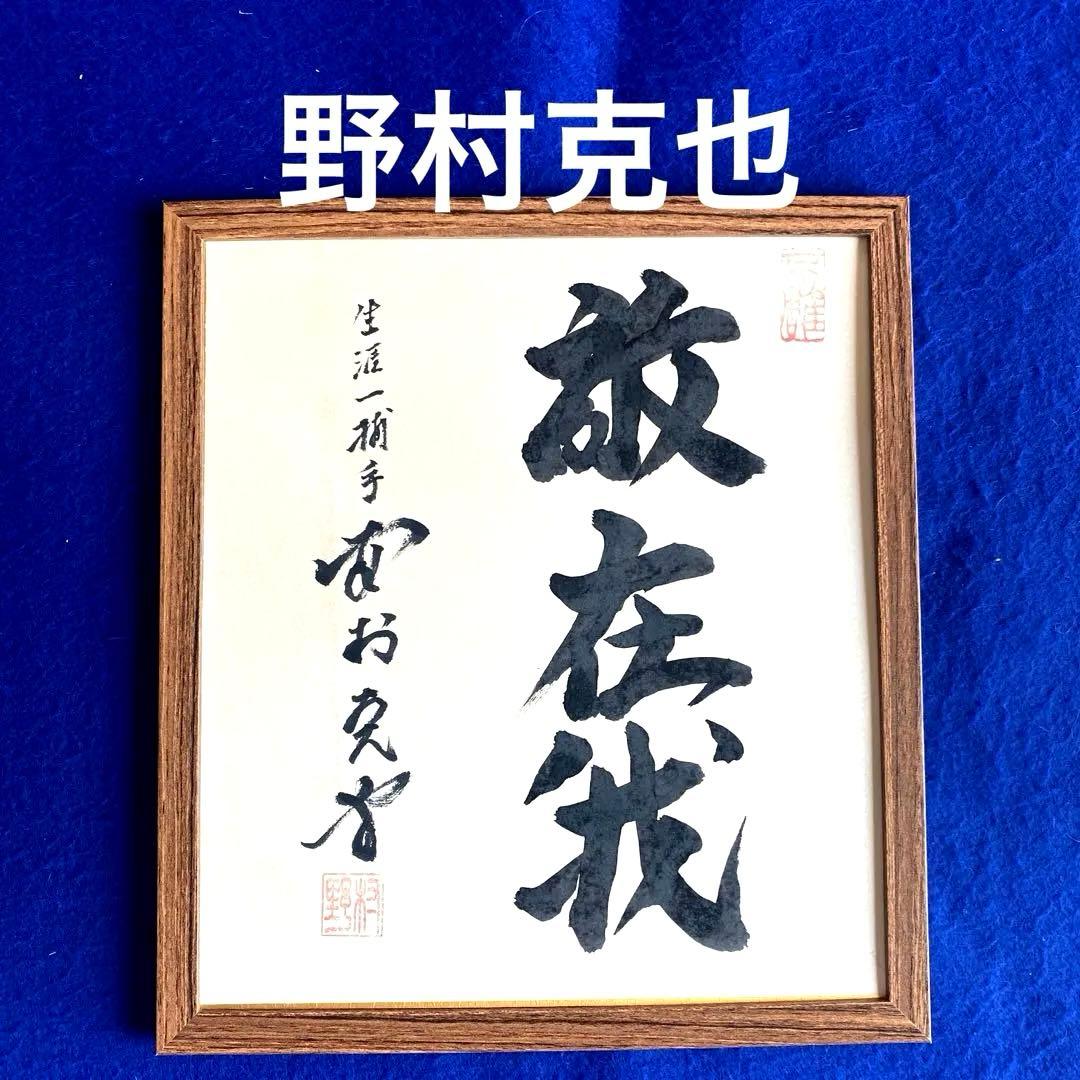 野村克也
敵在我
生涯一捕手 野村克也
野村